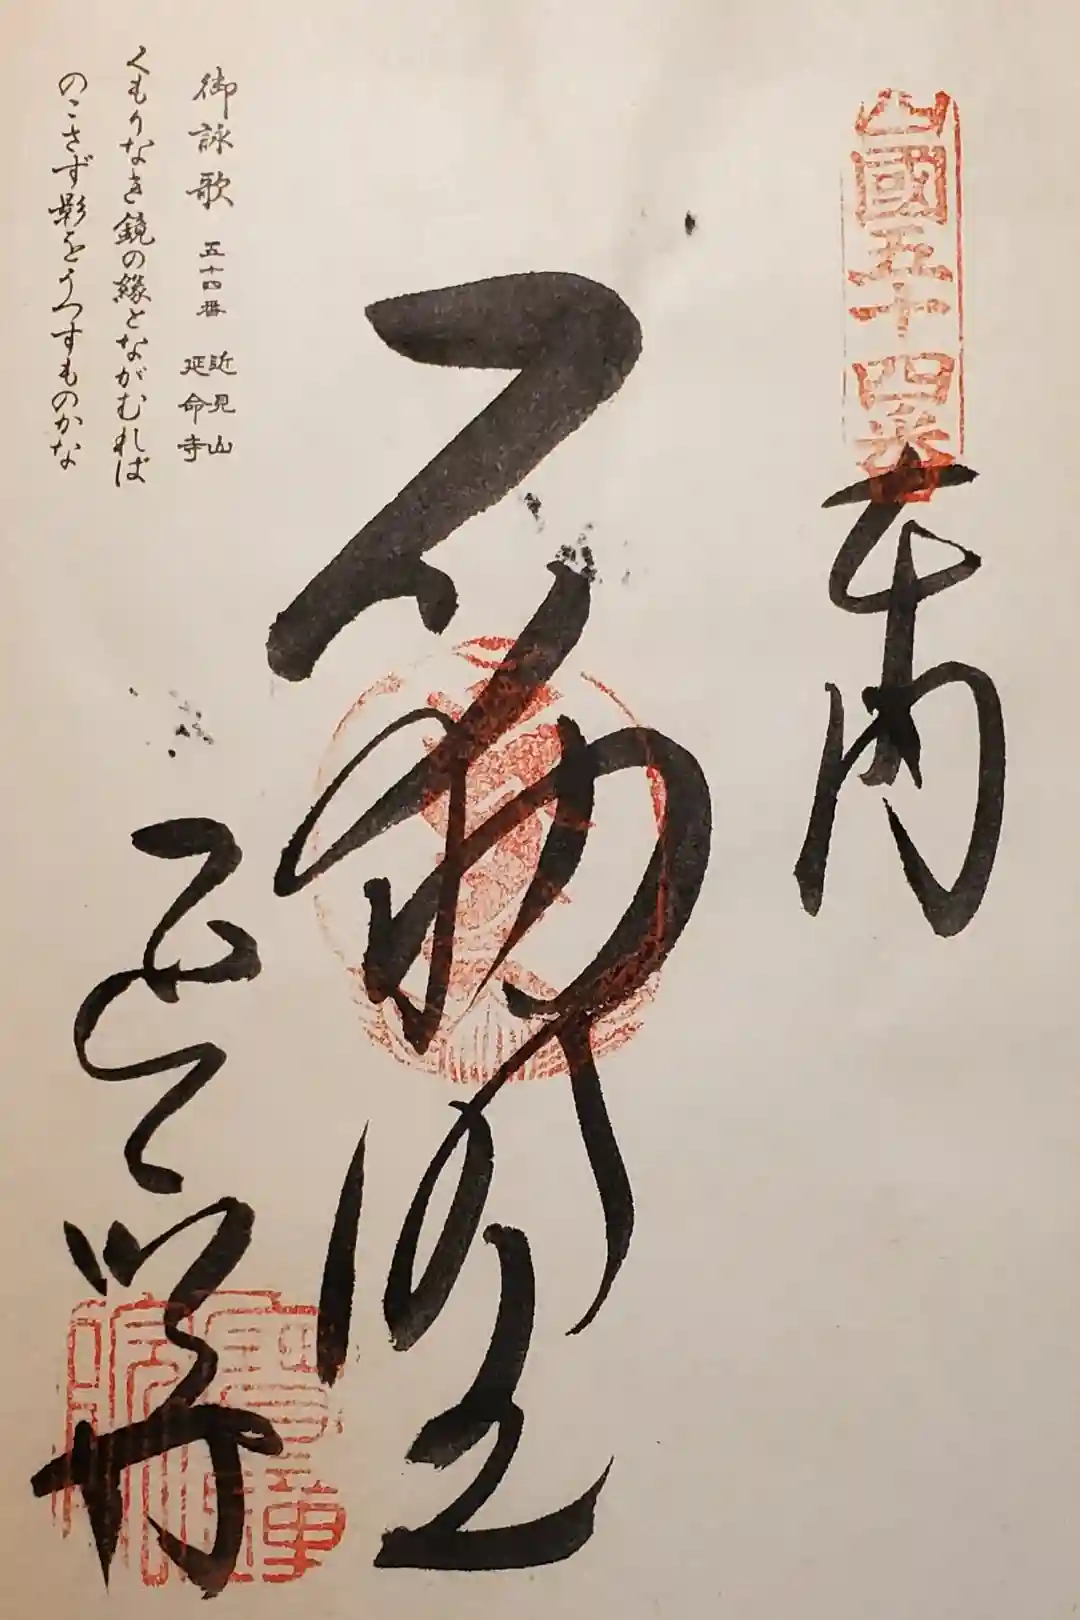 四國五十四番
奉納
不動明王
延命寺
御詠歌 五十四番 近見山 延命寺
くもりなき鏡の縁とながむれば
のこさず影をうつすものかな